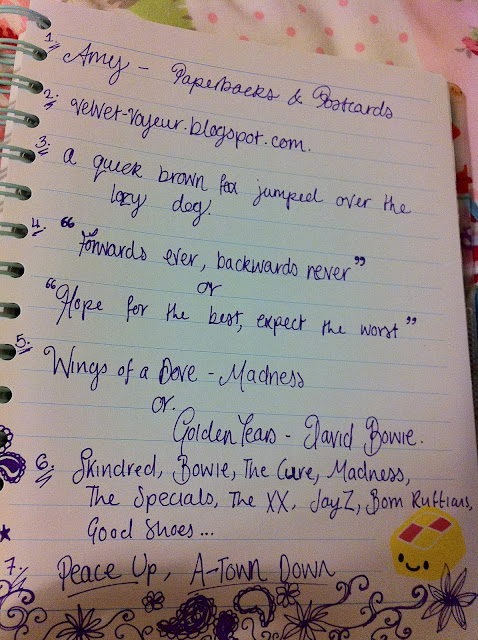 1. Amy - Paperbacks & Postcards
2. velvet-voyeur.blogspot.com.
3. a quick brown fox jumped over the
lazy dog.
4. "Forwards ever, backwards never"
or
"Hope for the best, expect the worst"
5. Wings of a Dove - Madness
or.
Golden Years - David Bowie.
6. Skindred, Bowie, The Cure, Madness,
The Specials, The XX, Jay Z, Born Ruffians,
Good Shoes...
7. Peace Up, A-Town Down